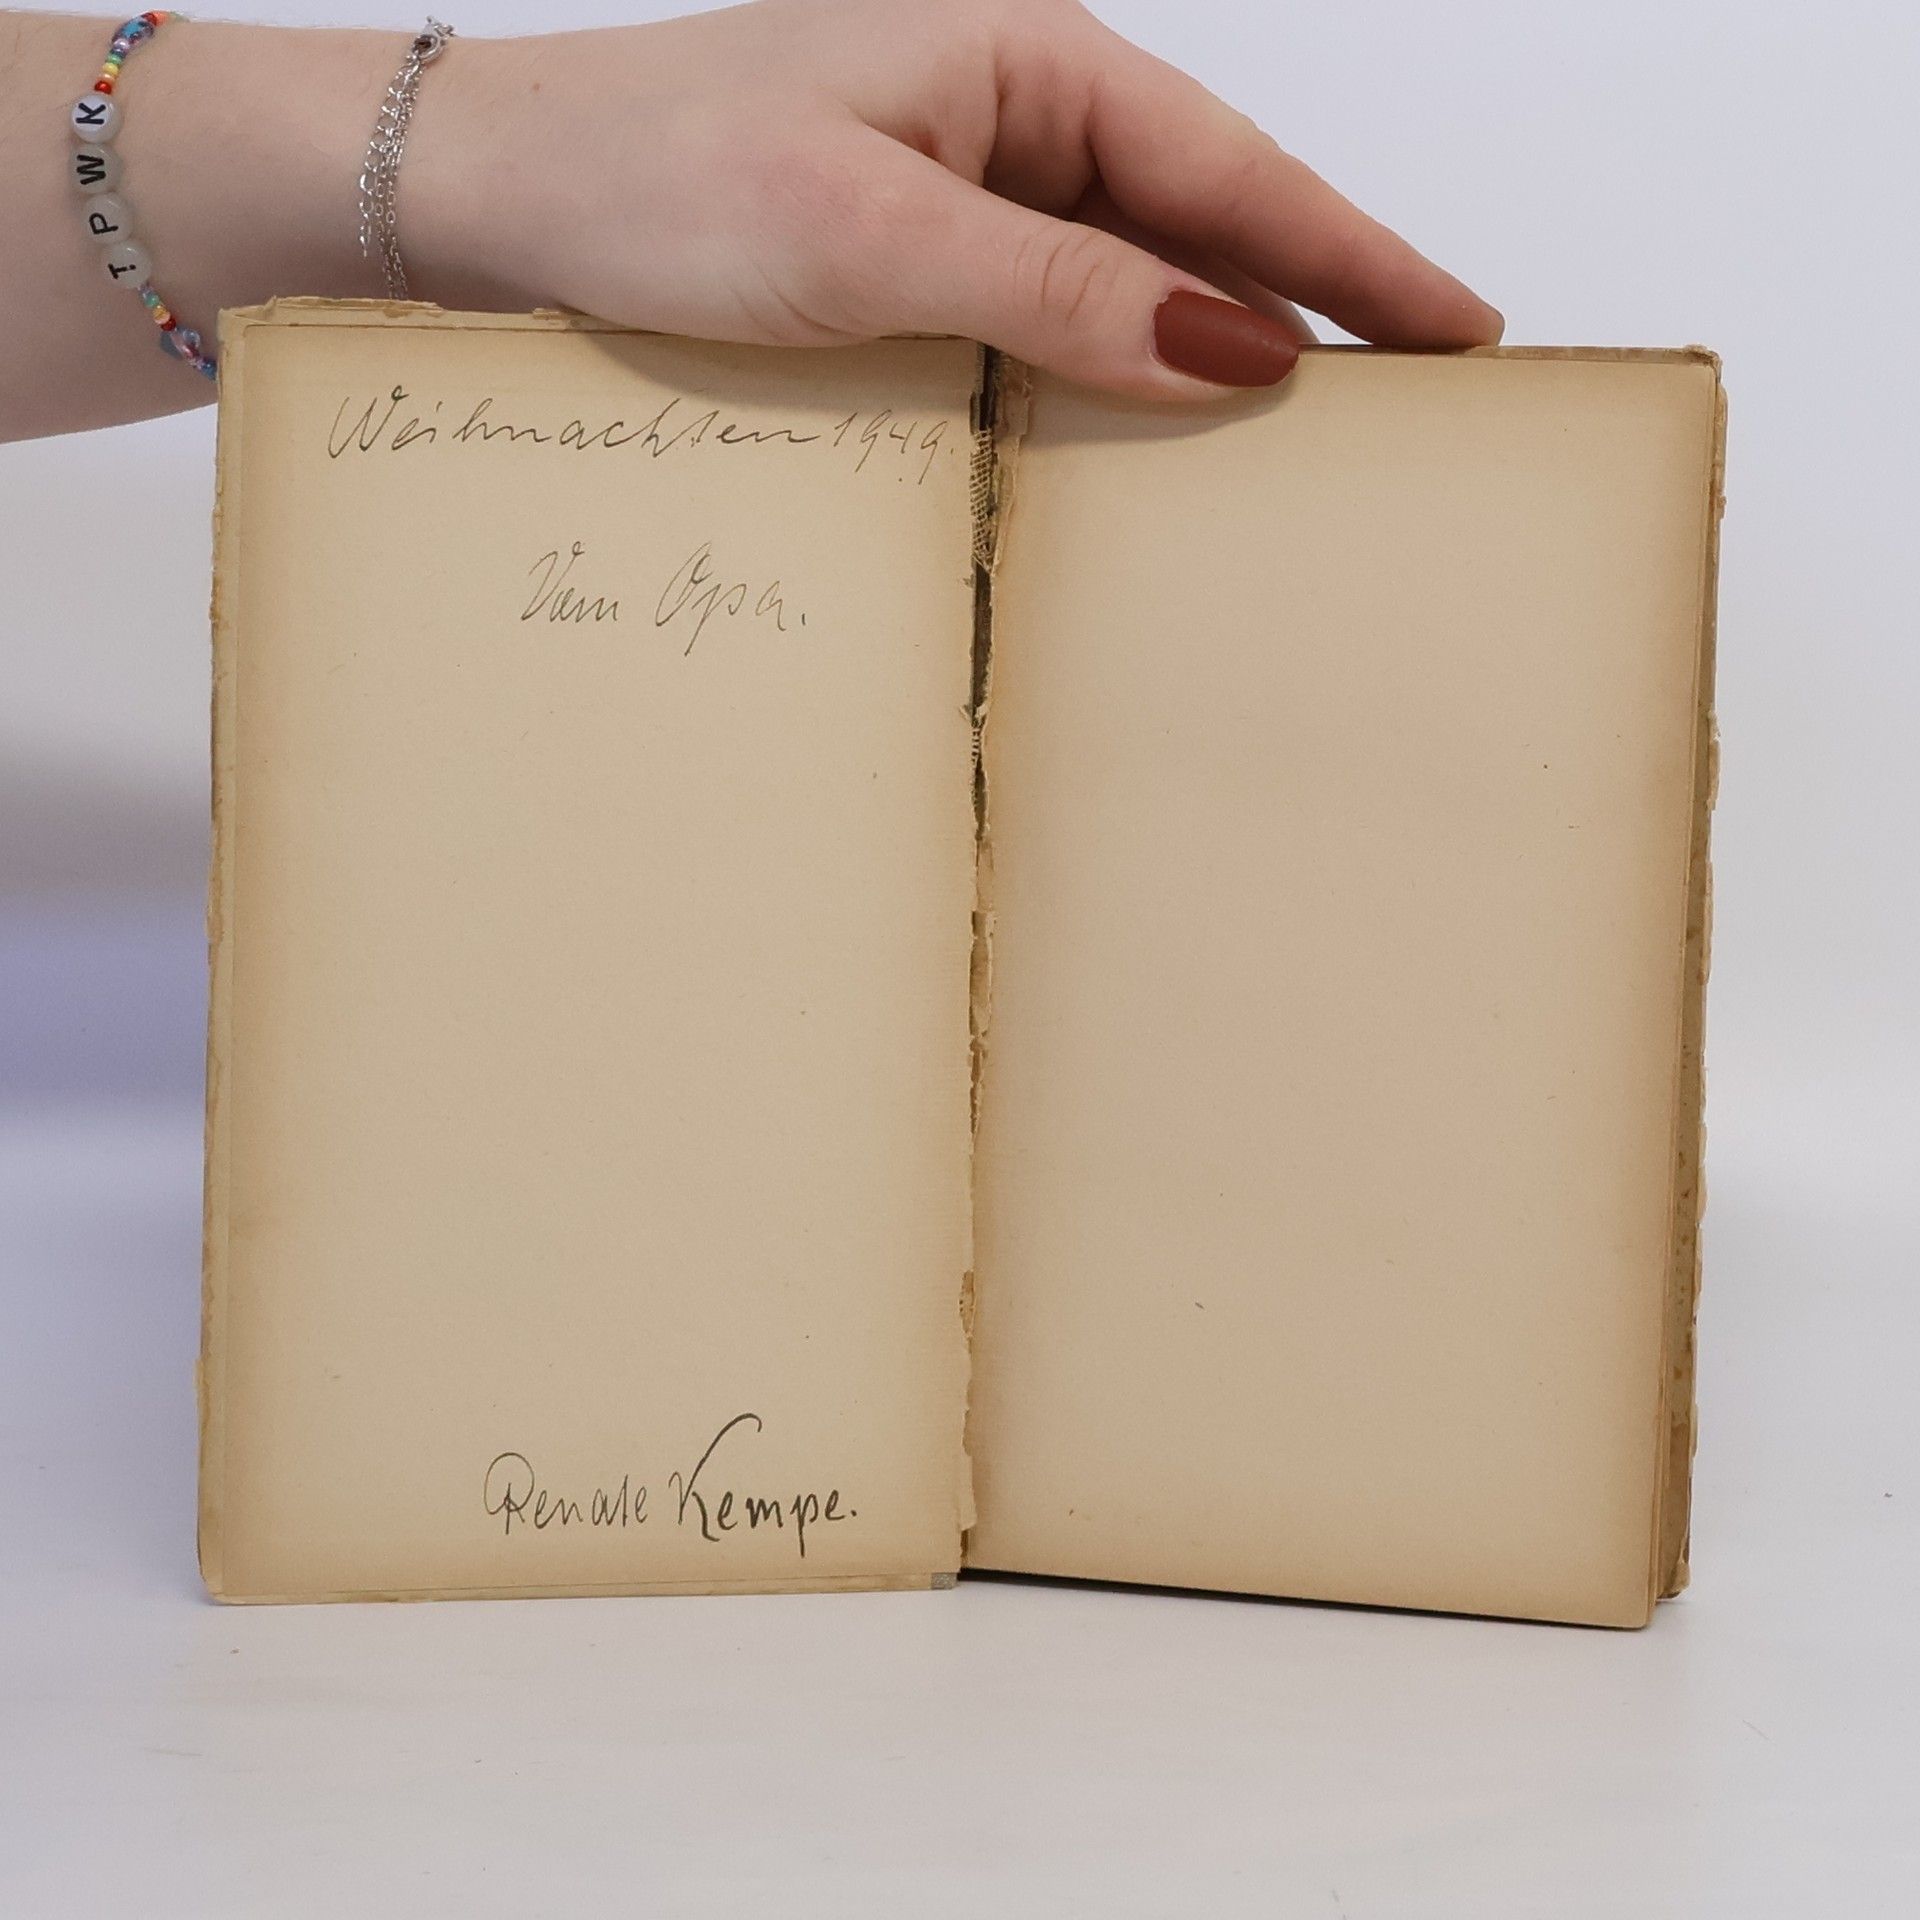 TPWK
Weihnachten 1949.
Vom Opa.
Renate Kempe.